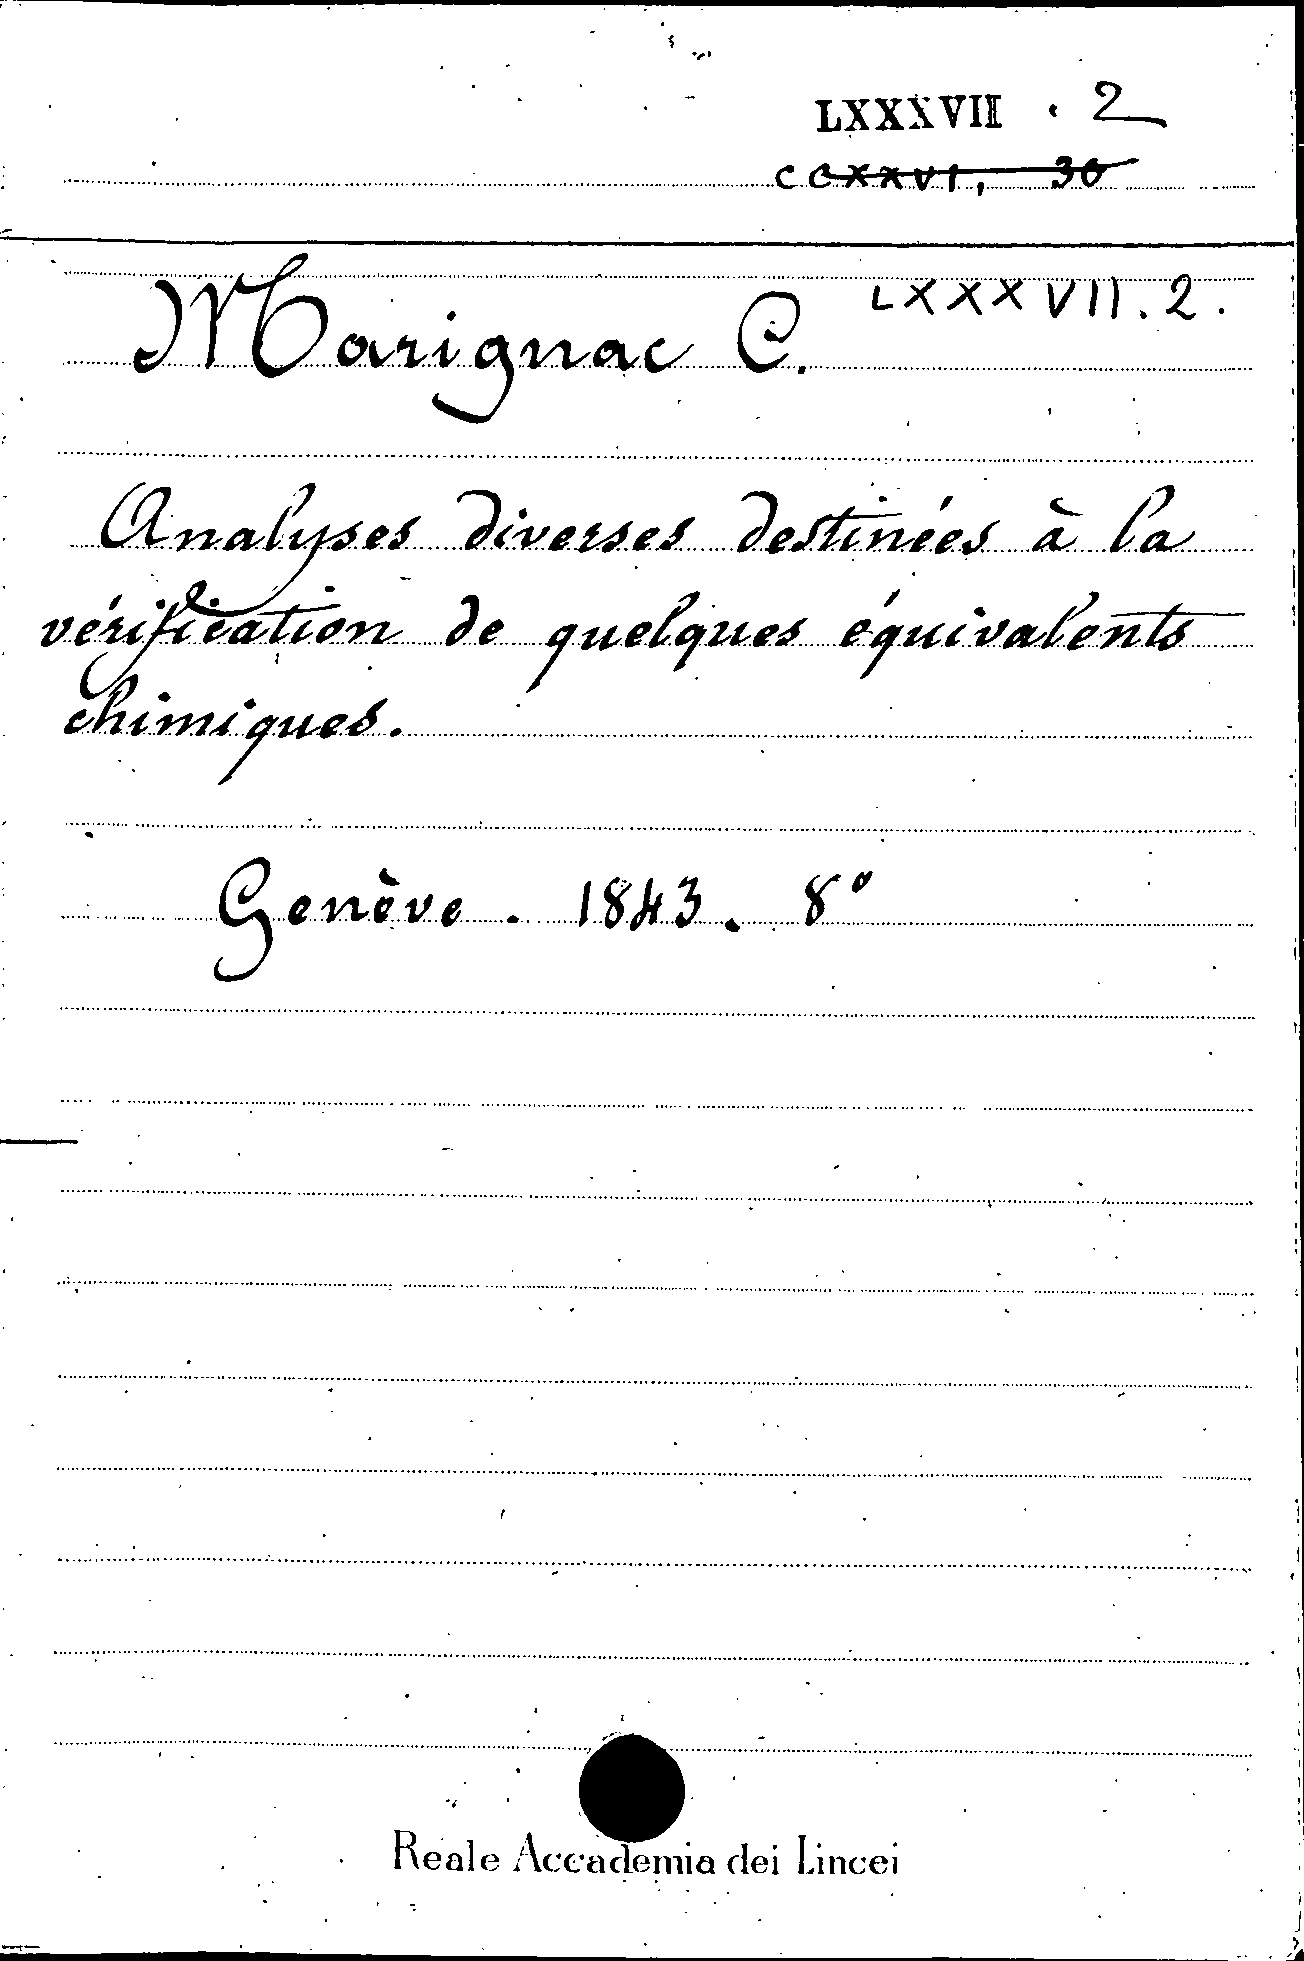 LXXXVII . 2
CCXXVI, 30
LXXXVII. 2.
Marignac C.
Analyses diverses destinées à la
vérification de quelques équivalents
chimiques.
Genève. 1843. 8°
Reale Accademia dei Lincei